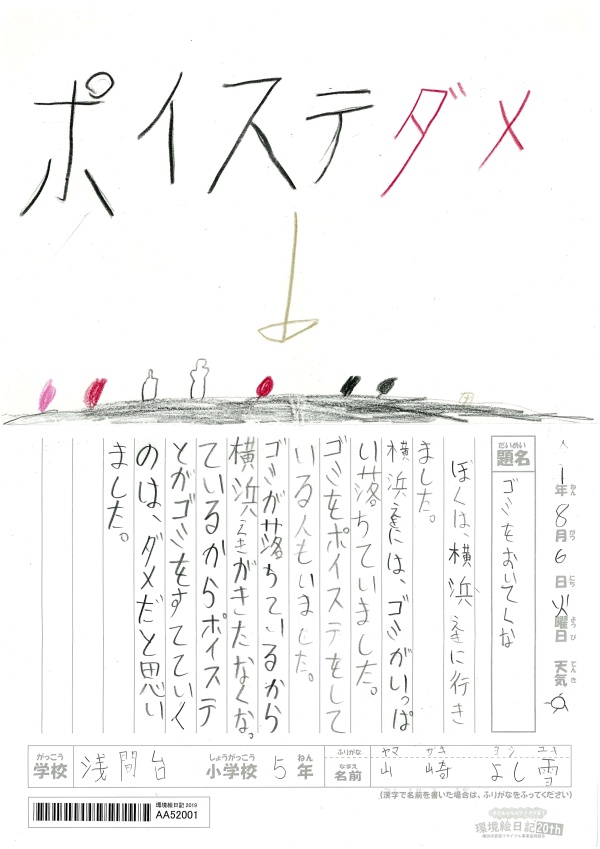 ポイステダメ
人 1年8月6日火曜日 天気
ねん がつ にち ようび てんき
だいめい
題名 ゴミをおいてくな
ぼくは、横浜えきに行き
ました。
横浜えきには、ゴミがいっぱ
い落ちていました。
ゴミをポイステをして
いる人もいました。
ゴミが落ちているから
横浜えきがきたなくな。
ているからポイステ
とかゴミをすてていく
のは、ダメだと思い
ました。
がっこう しょうがっこう ねん
学校 浅間台 小学校 5年
ふりがな ヤマ ザキ ヨシ ユキ
なまえ
名前 山崎 よし雪
(漢字で名前を書いた場合は、ふりがなをふってください)
環境絵日記2019
AA52001
環境絵日記20th